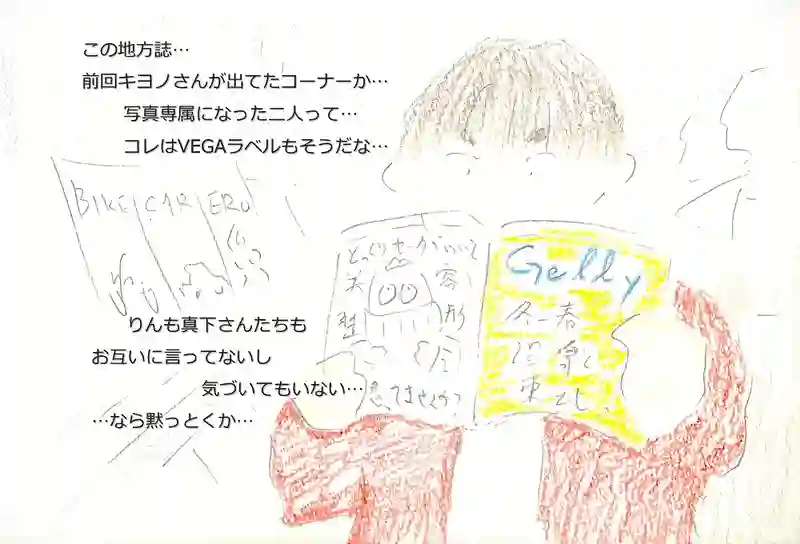 この地方誌…
前回キヨノさんが出てたコーナーか…
写真専属になった二人って…
コレはVEGAラベルもそうだな…
BIKE CAR ERO
Gelly
冬～春
りんも真下さんたちも
お互いに言ってないし
気づいてもいない…
…なら黙っとくか…